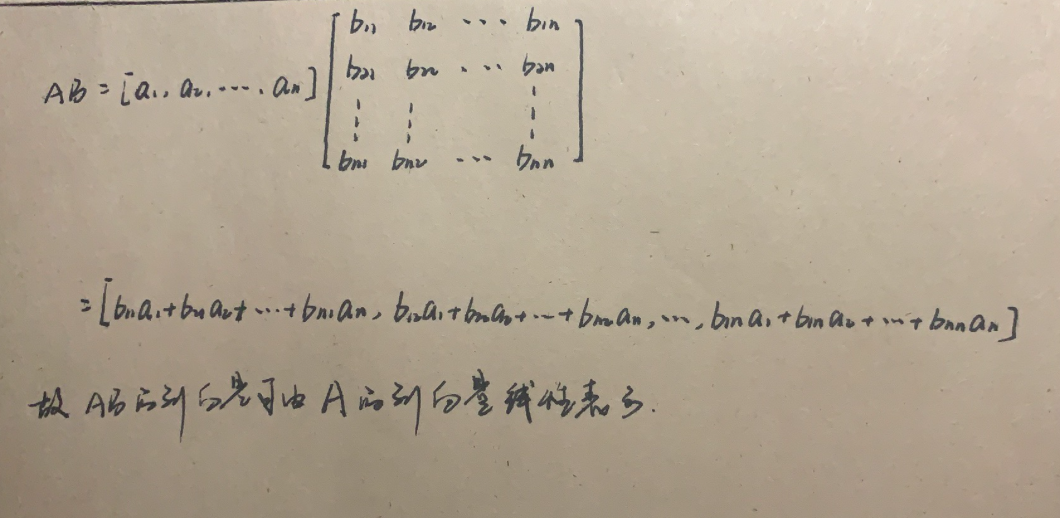 AB = [a₁, a₂, ..., aₙ] [b₁₁ b₁₂ ... b₁ₙ
b₂₁ b₂₂ ... b₂ₙ
⋮ ⋮ ⋮
bₙ₁ bₙ₂ ... bₙₙ]
= [b₁₁a₁+b₂₁a₂+...+bₙ₁aₙ, b₁₂a₁+b₂₂a₂+...+bₙ₂aₙ, ..., b₁ₙa₁+b₁ₙa₂+...+bₙₙaₙ]
故AB的列向量可由A的列向量线性表示.